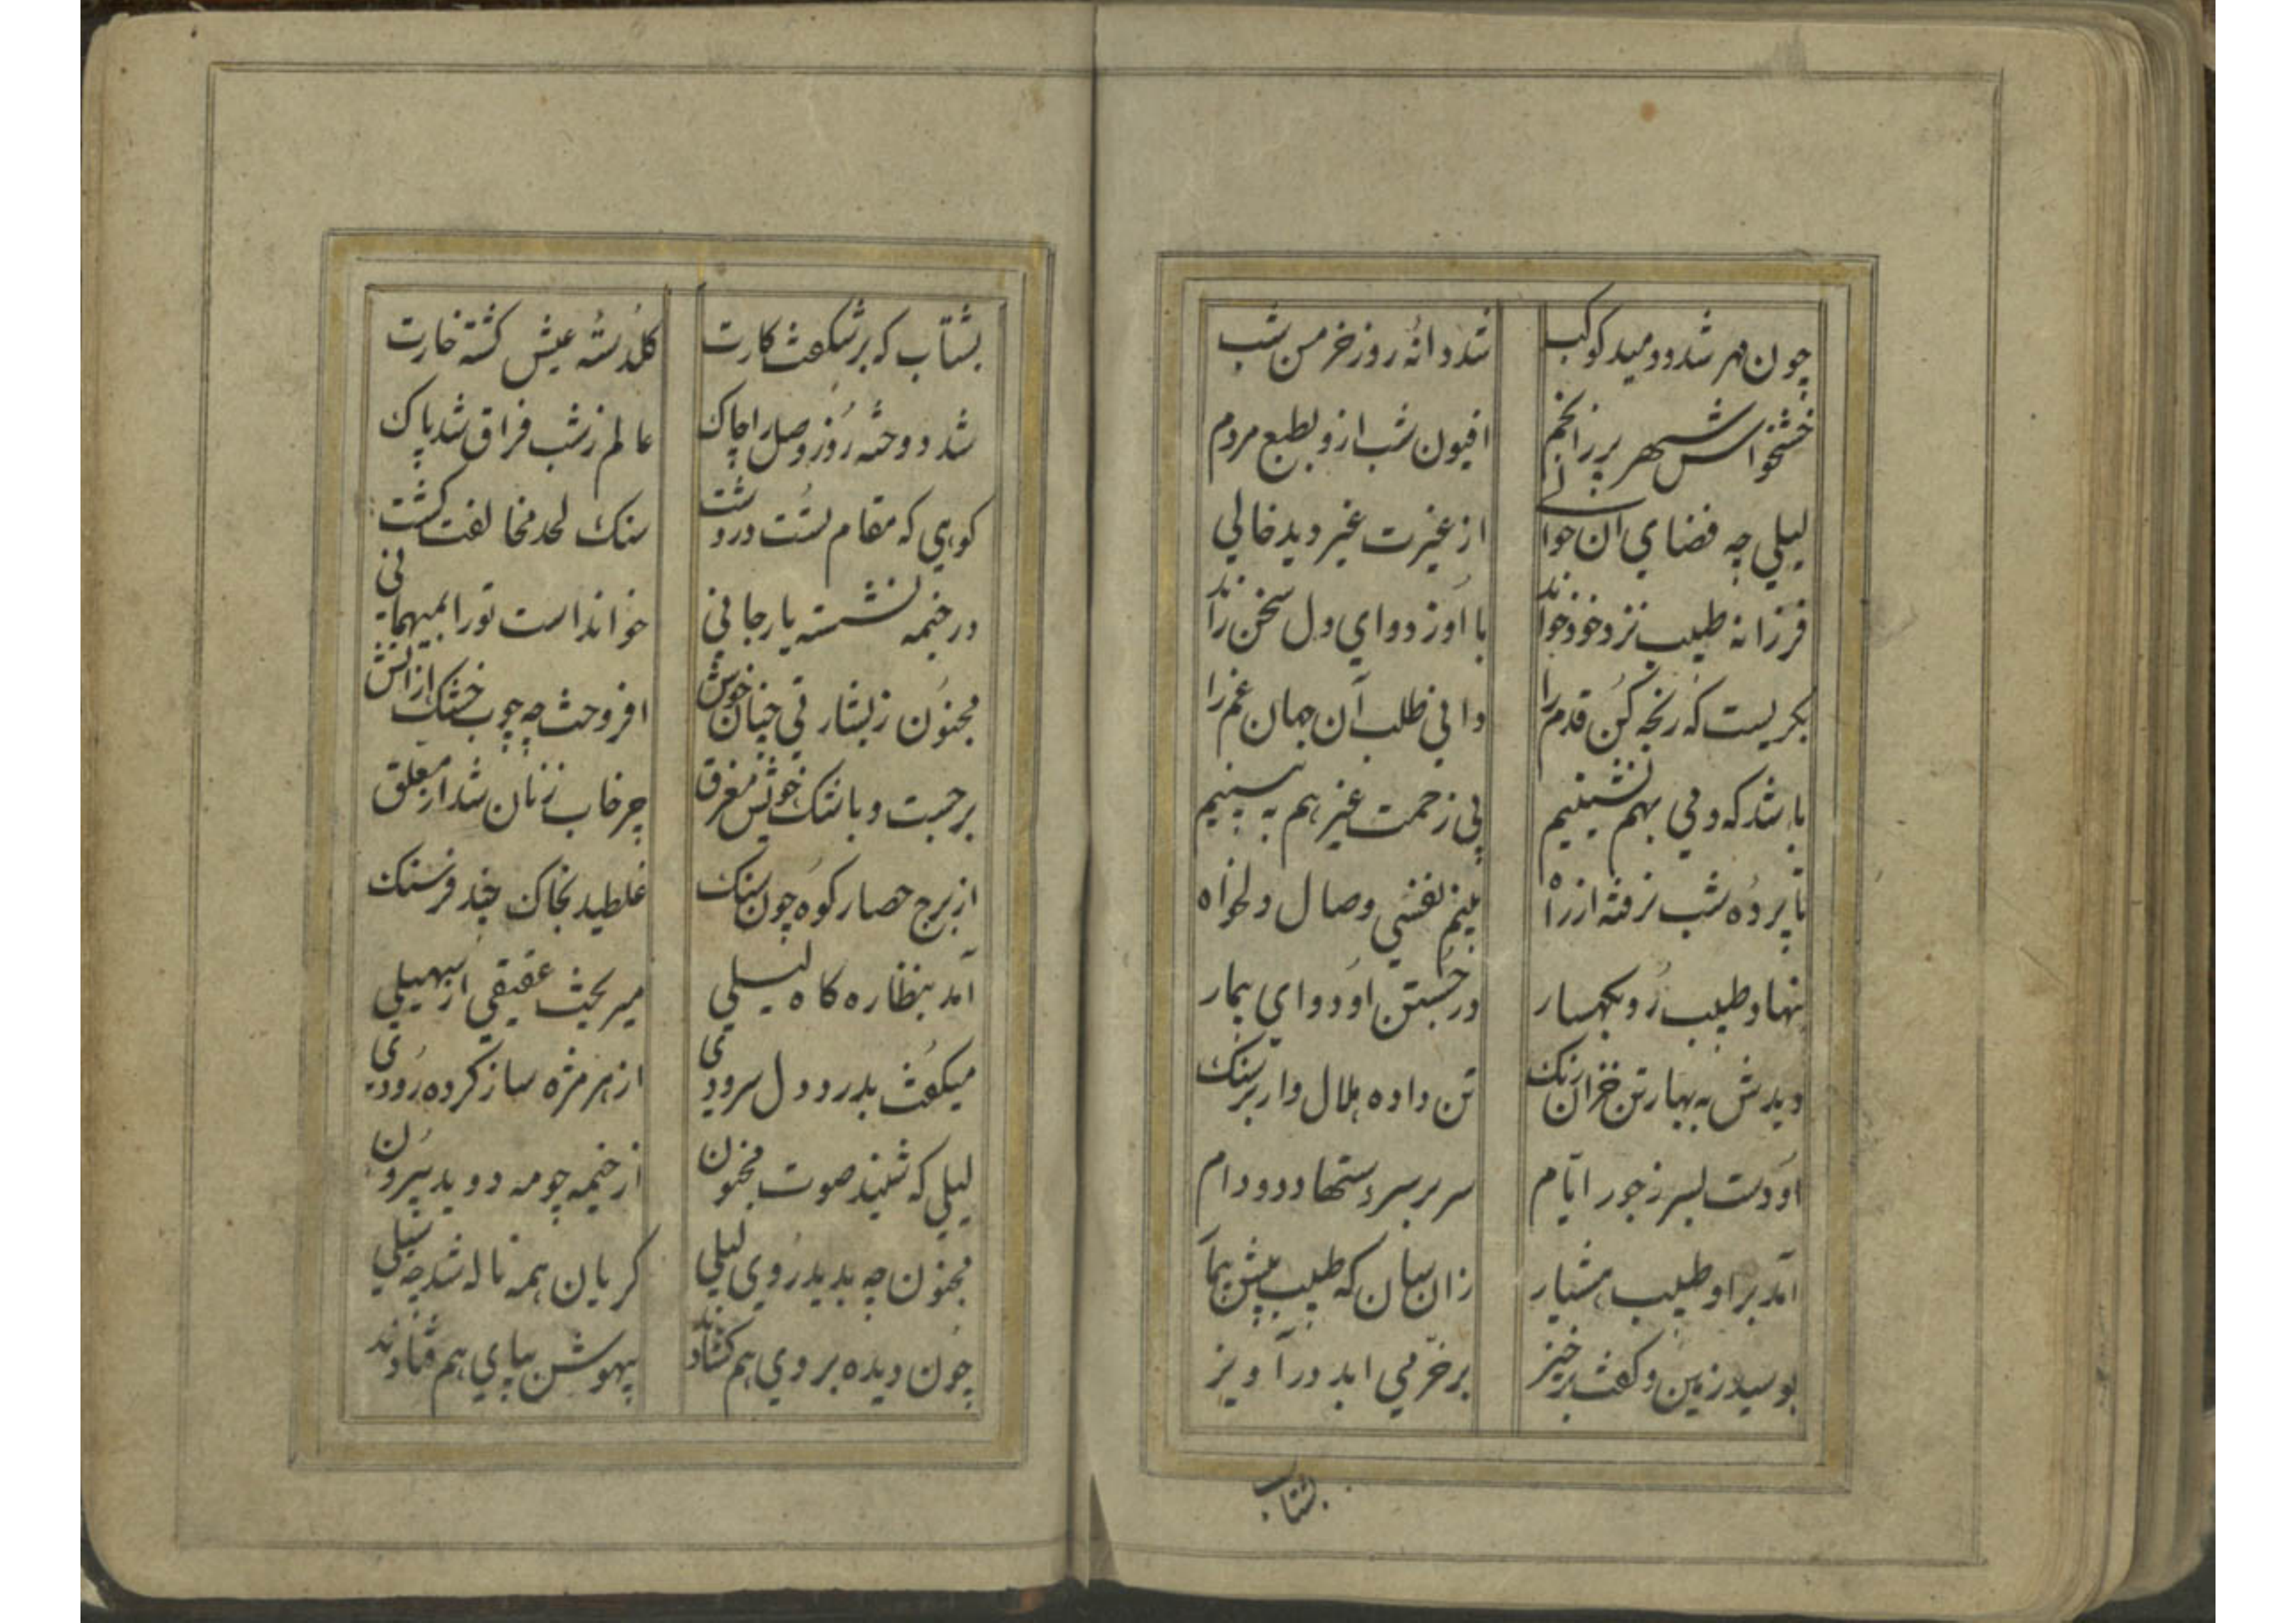 چون مهر شد و دمید کوکب شد دانه روز خرمن شب
خشخاش سپهر پر ز انجم افیون شب ازو بطبع مردم
لیلی چه فضای آن حوالی از غیرت غیر دید خالی
فرزانه طبیب نزد خود خواند با او ز دوای دل سخن راند
بکریست که رنجه کن قدم را دانی طلب آن جهان غم را
باشد که دمی بهم نشینیم بی زحمت غیر هم به بینیم
تا پرده شب نرفته از راه بینم نفسی وصال دلخواه
بنهاد طبیب رو بکهسار در جستن او دوای بیمار
دیدش به بهار تن خزان رنک تن داده هلال وار بر سنک
او دست بسر ز جور ایام سر بر سر دستها دد و دام
آمد بر او طبیب هشیار زان سان که طبیب پیش بیمار
بوسید زمین و کفت برخیز بر خرمی ابد در آویز
بشتاب
بشتاب که بر شکفت کارت کلدسته عیش کشته خارت
شد دوخته روز وصل را چاک عالم ز شب فراق شد پاک
کوهی که مقام تست در دشت سنک لحد مخالفت کشت
در خیمه نشسته یار جانی خوانداست تو را بمیهمانی
مجنون ز بشارتی چنان خوش افروخت چه چوب خشک از آتش
برجست و باشک خویش مغرق چرخاب زنان شد از معلق
از برج حصار کوه چون سنک غلطید بخاک چند فرسنک
آمد بنظاره کاه لیلی میریخت عقیقی از سهیلی
میکفت بدرد دل سرودی از هر مژه ساز کرده رودی
لیلی که شنید صوت مجنون از خیمه چو مه دوید بیرون
مجنون چه بدید روی لیلی کریان همه ناله شد چه سیلی
چون دیده بروی هم کشادند بیهوش بپای هم فتادند